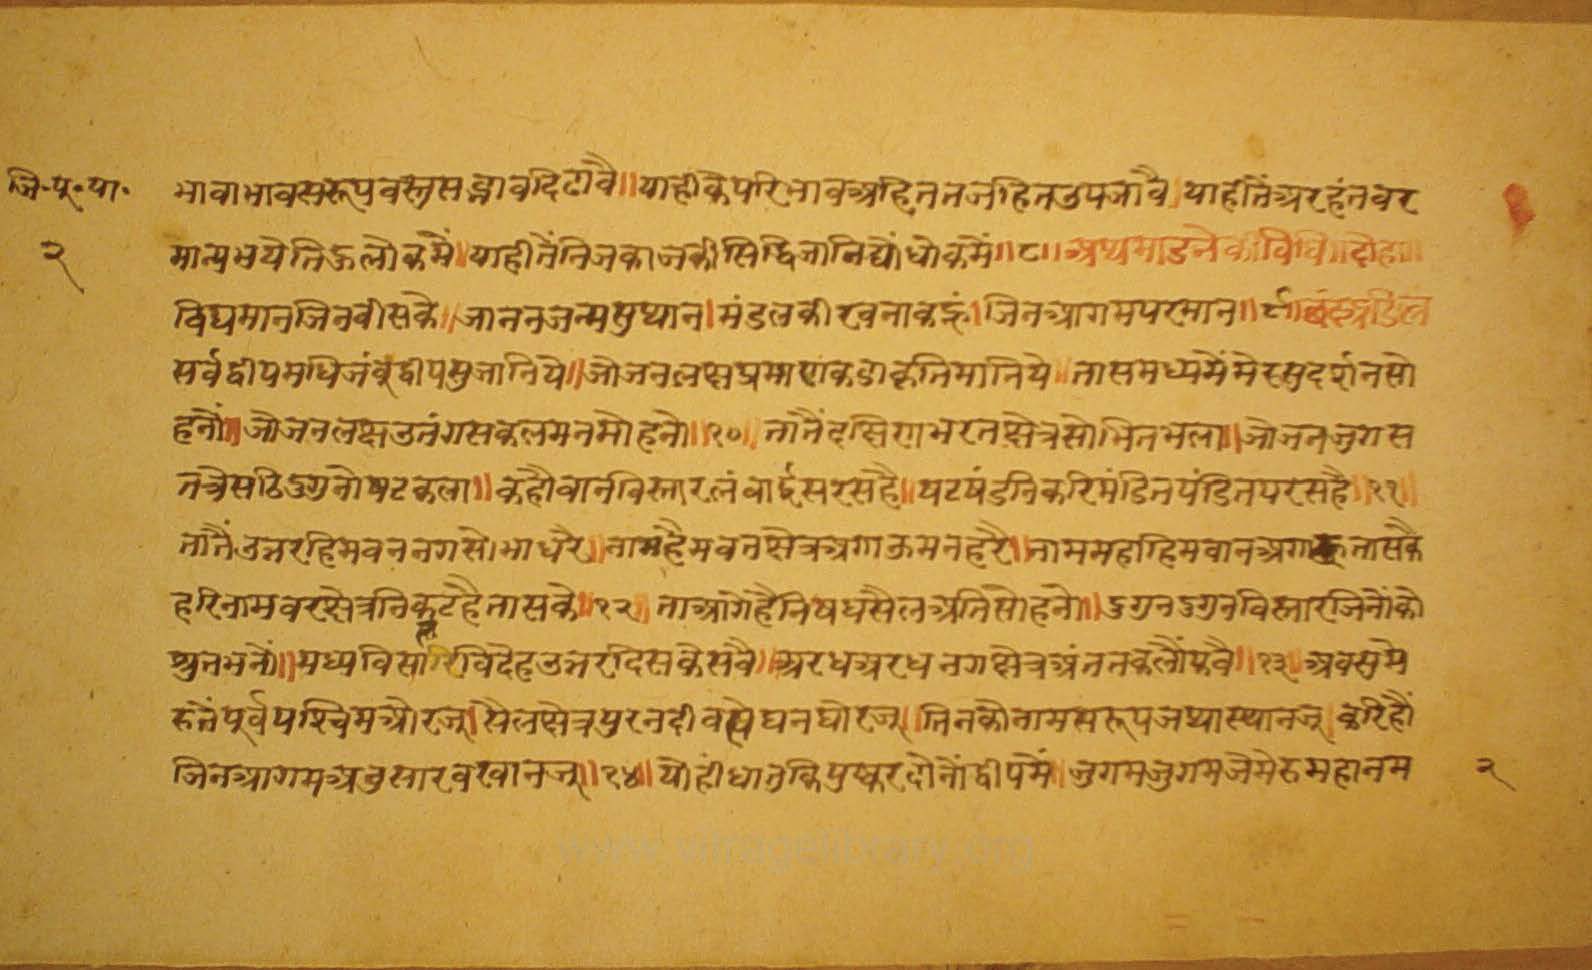 जि.पू.पा.
भावाभावसरूपवस्तुसद्भावदिढावै॥याहीकेपरिभावअहिततजहितउपजावै।याहीतैंअरहंतवर
२
मान्यभयेतिऊलोकमें॥याहीतैंनिजकाजकीसिद्धिजानिद्यौंधोकमैं॥८॥अथमाडनेकीविधि॥दोहा॥
विद्यमानजिनवीसके॥जाननजन्मसुथान।मंडलकीरचनाकहूं।जिनआगमपरमान॥९॥
सर्वद्वीपमधिजंबूद्वीपसुजानिये॥जोजनलक्षप्रमाणकडाकृतिमानिये॥तासमध्यमैंमेरसुदर्शनसो
हनौं॥जोजनलक्षउतंगसकलमनमोहनो॥१०॥तातैंदक्षिणभरतक्षेत्रसोभितभला॥जोजनजुगस
तत्रेसठिदुगुनोषटकला॥कहौवानविस्तारलंवाईसरसहै॥षटषंडनिकरिमंडितपंडितपरसहै॥११॥
तातैंउत्तरहिमवननगसोभाधरै॥नामहैमवतक्षेत्रअगाऊमनहरै॥नाममहाहिमवानअगाऊतासकै
हरिनामवरक्षेत्रनिकटहैतासके॥१२॥ताआगेहैनिषधसैलअतिसोहनो॥दुगुनदुगुनविस्तारजिनोंको
श्रुतभनों॥मध्यविदेहउत्तरदिसकेसवै॥अरधअरधनगक्षेत्रअंतत
रुतैंपूर्वपश्चिमओरजू।सैलक्षेत्रपुरनदीवघनघोरजू।तिनकोनामसरूपजथास्थानजू।करिहौं
जिनआगमअनुसारवखानजू॥१४॥योहींधातुकिपुष्करदोनोंद्वीपमैं॥जुगमजुगमजैमेरुमहानम
२